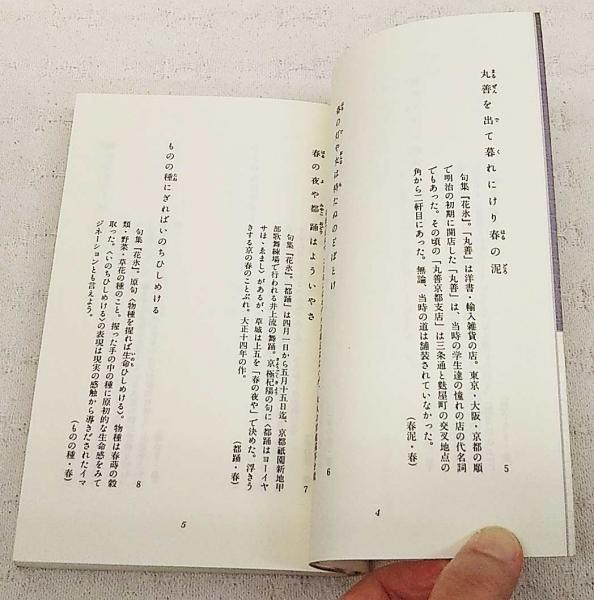 丸善を出て暮れにけり春の泥
句集『花氷』。「丸善」は洋書・輸入雑貨の店。東京・大阪・京都の順
で明治の初期に開店した「丸善」は、当時の学生達の憧れの店の代名詞
でもあった。その頃の「丸善京都支店」は三条通と麩屋町の交叉地点の
角から二軒目にあった。無論、当時の道は舗装されていなかった。
(春泥・春)
5
春の灯や
4
6
春の夜や都踊はよういやさ
句集『花氷』。「都踊」は四月一日から五月十五日迄、京都祇園新地甲
部歌舞練場で行われる井上流の舞踊。京極杞陽の句に〈都踊はヨーイヤ
サほゝゑまし〉があるが、草城は上五を「春の夜や」で決めた。浮きう
きする京の春のことぶれ。大正十四年の作。
(都踊・春)
7
ものの種にぎればいのちひしめける
句集『花氷』。原句〈物種を握れば生命ひしめける〉。物種は春蒔の穀
類・野菜・草花の種のこと。握った手の中の種に原初的な生命感をみて
取った。〈いのちひしめける〉の表現は現実の感触から導きだされたイマ
ジネーションとも言えよう。
(ものの種・春)
8
5